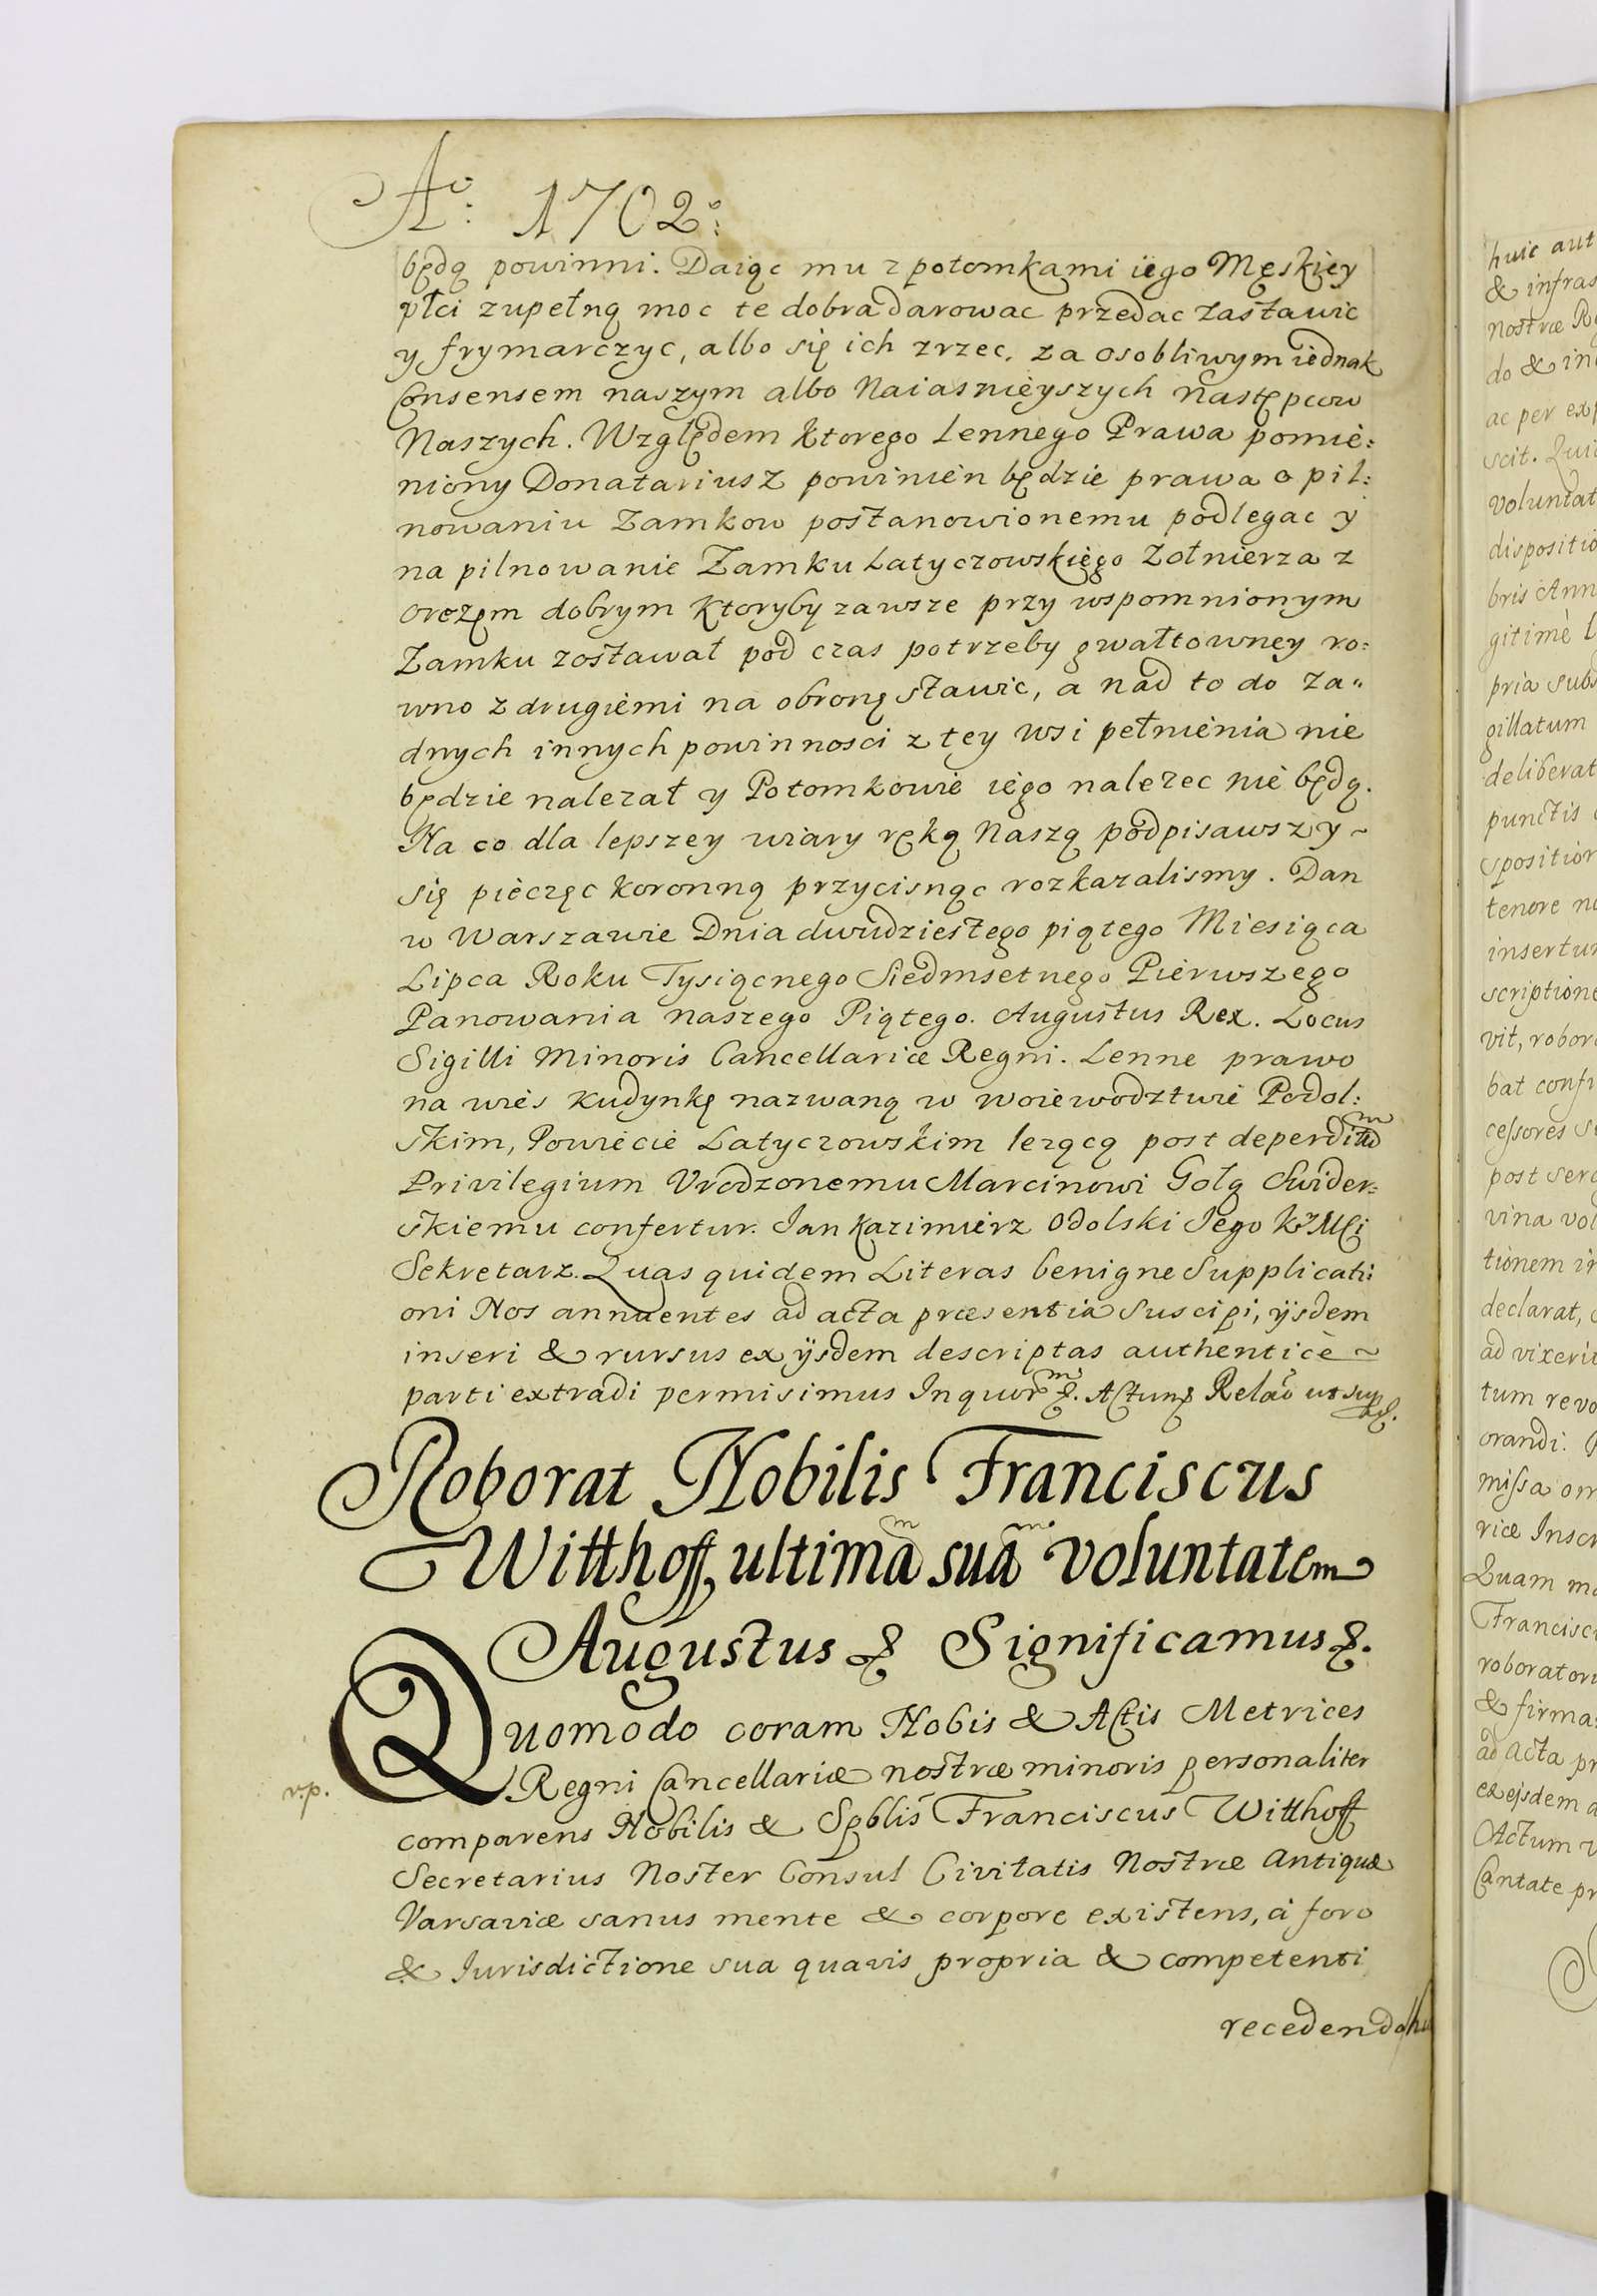 Aº: 1702º:
będą powinni. Daiąc mu z potomkami iego Męskiey
płci zupełną moc te dobra darowac przedac zastawic
y frymarczyc, albo się ich zrzec, za osobliwym iednak
Consensem naszym albo Naiasnieyszych Następcow
Naszych. Względem ktorego Lennego Prawa pomie:
niony Donatariusz powinien będzie prawa o pil:
nowaniu Zamkow postanowionemu podlegac y
na pilnowanie Zamku Latyczowskiego Zołnierza z
orężem dobrym ktoryby zawsze przy wspomnionym
Zamku zostawał pod czas potrzeby gwałtowney ro:
wno z drugiemi na obronę stawic, a nad to do za„
dnych innych powinnosci z tey wsi pełnienia nie
będzie nalezał y Potomkowie iego nalezec nie będą.
Na co dla lepszey wiary ręką Naszą podpisawszy~
się pieczęc koronną przycisnąc rozkazalismy. Dan
w Warszawie Dnia dwudziestego piątego Miesiąca
Lipca Roku Tysiącnego Siedmsetnego Pierwszego
Panowania naszego Piątego. Augustus Rex. Locus
Sigilli Minoris Cancellariæ Regni. Lenne prawo
na wies Kudynkę nazwaną w woiewodztwie Podol:
skim, Powiecie Latyczowskim lezącą post deperditū
Privilegium Vrodzonemu Marcinowi Golą Swider:
skiemu confertur. Jan Kazimierz Odolski Jego Kr MCi
Sekretarz. Quas quidem Literas benigne Supplicati
oni Nos annuentes ad acta præsentia suscipi, ÿsdem
inseri & rursus ex ÿsdem descriptas authenticè~
parti extradi permisimus In quorm &. Actum & Relao ut supra.
Roborat Nobilis Franciscus
Witthoff ultimam suam voluntatem
Augustus & Significamus &.
Quomodo coram Nobis & Actis Metrices
Regni Cancellariæ nostræ minoris personaliter
v.p.
comparens Nobilis & Spblis Franciscus Witthoff
Secretarius Noster Consul Civitatis Nostræ Antiquæ
Varsaviæ sanus mente & corpore existens, à foro
& Jurisdictione sua quavis propria & competenti
recedendo hu
huic aut
& infras
nostræ Re
do & in
ac per exp
scit. Qui
voluntat
dispositio
bris Ann
gitimè
pria subs
gillatum
deliberat
punctis
spositior
tenore
insertur
scriptione
vit, robora
bat confi
cessores
post
vina vol
tionem in
declarat,
ad vixerit
tum revo
orandi.
missa om
riæ Inscr
Quam
Francisc
roborator
& firma
ad Acta pr
ex ejsdem
Actum
Cantate pr